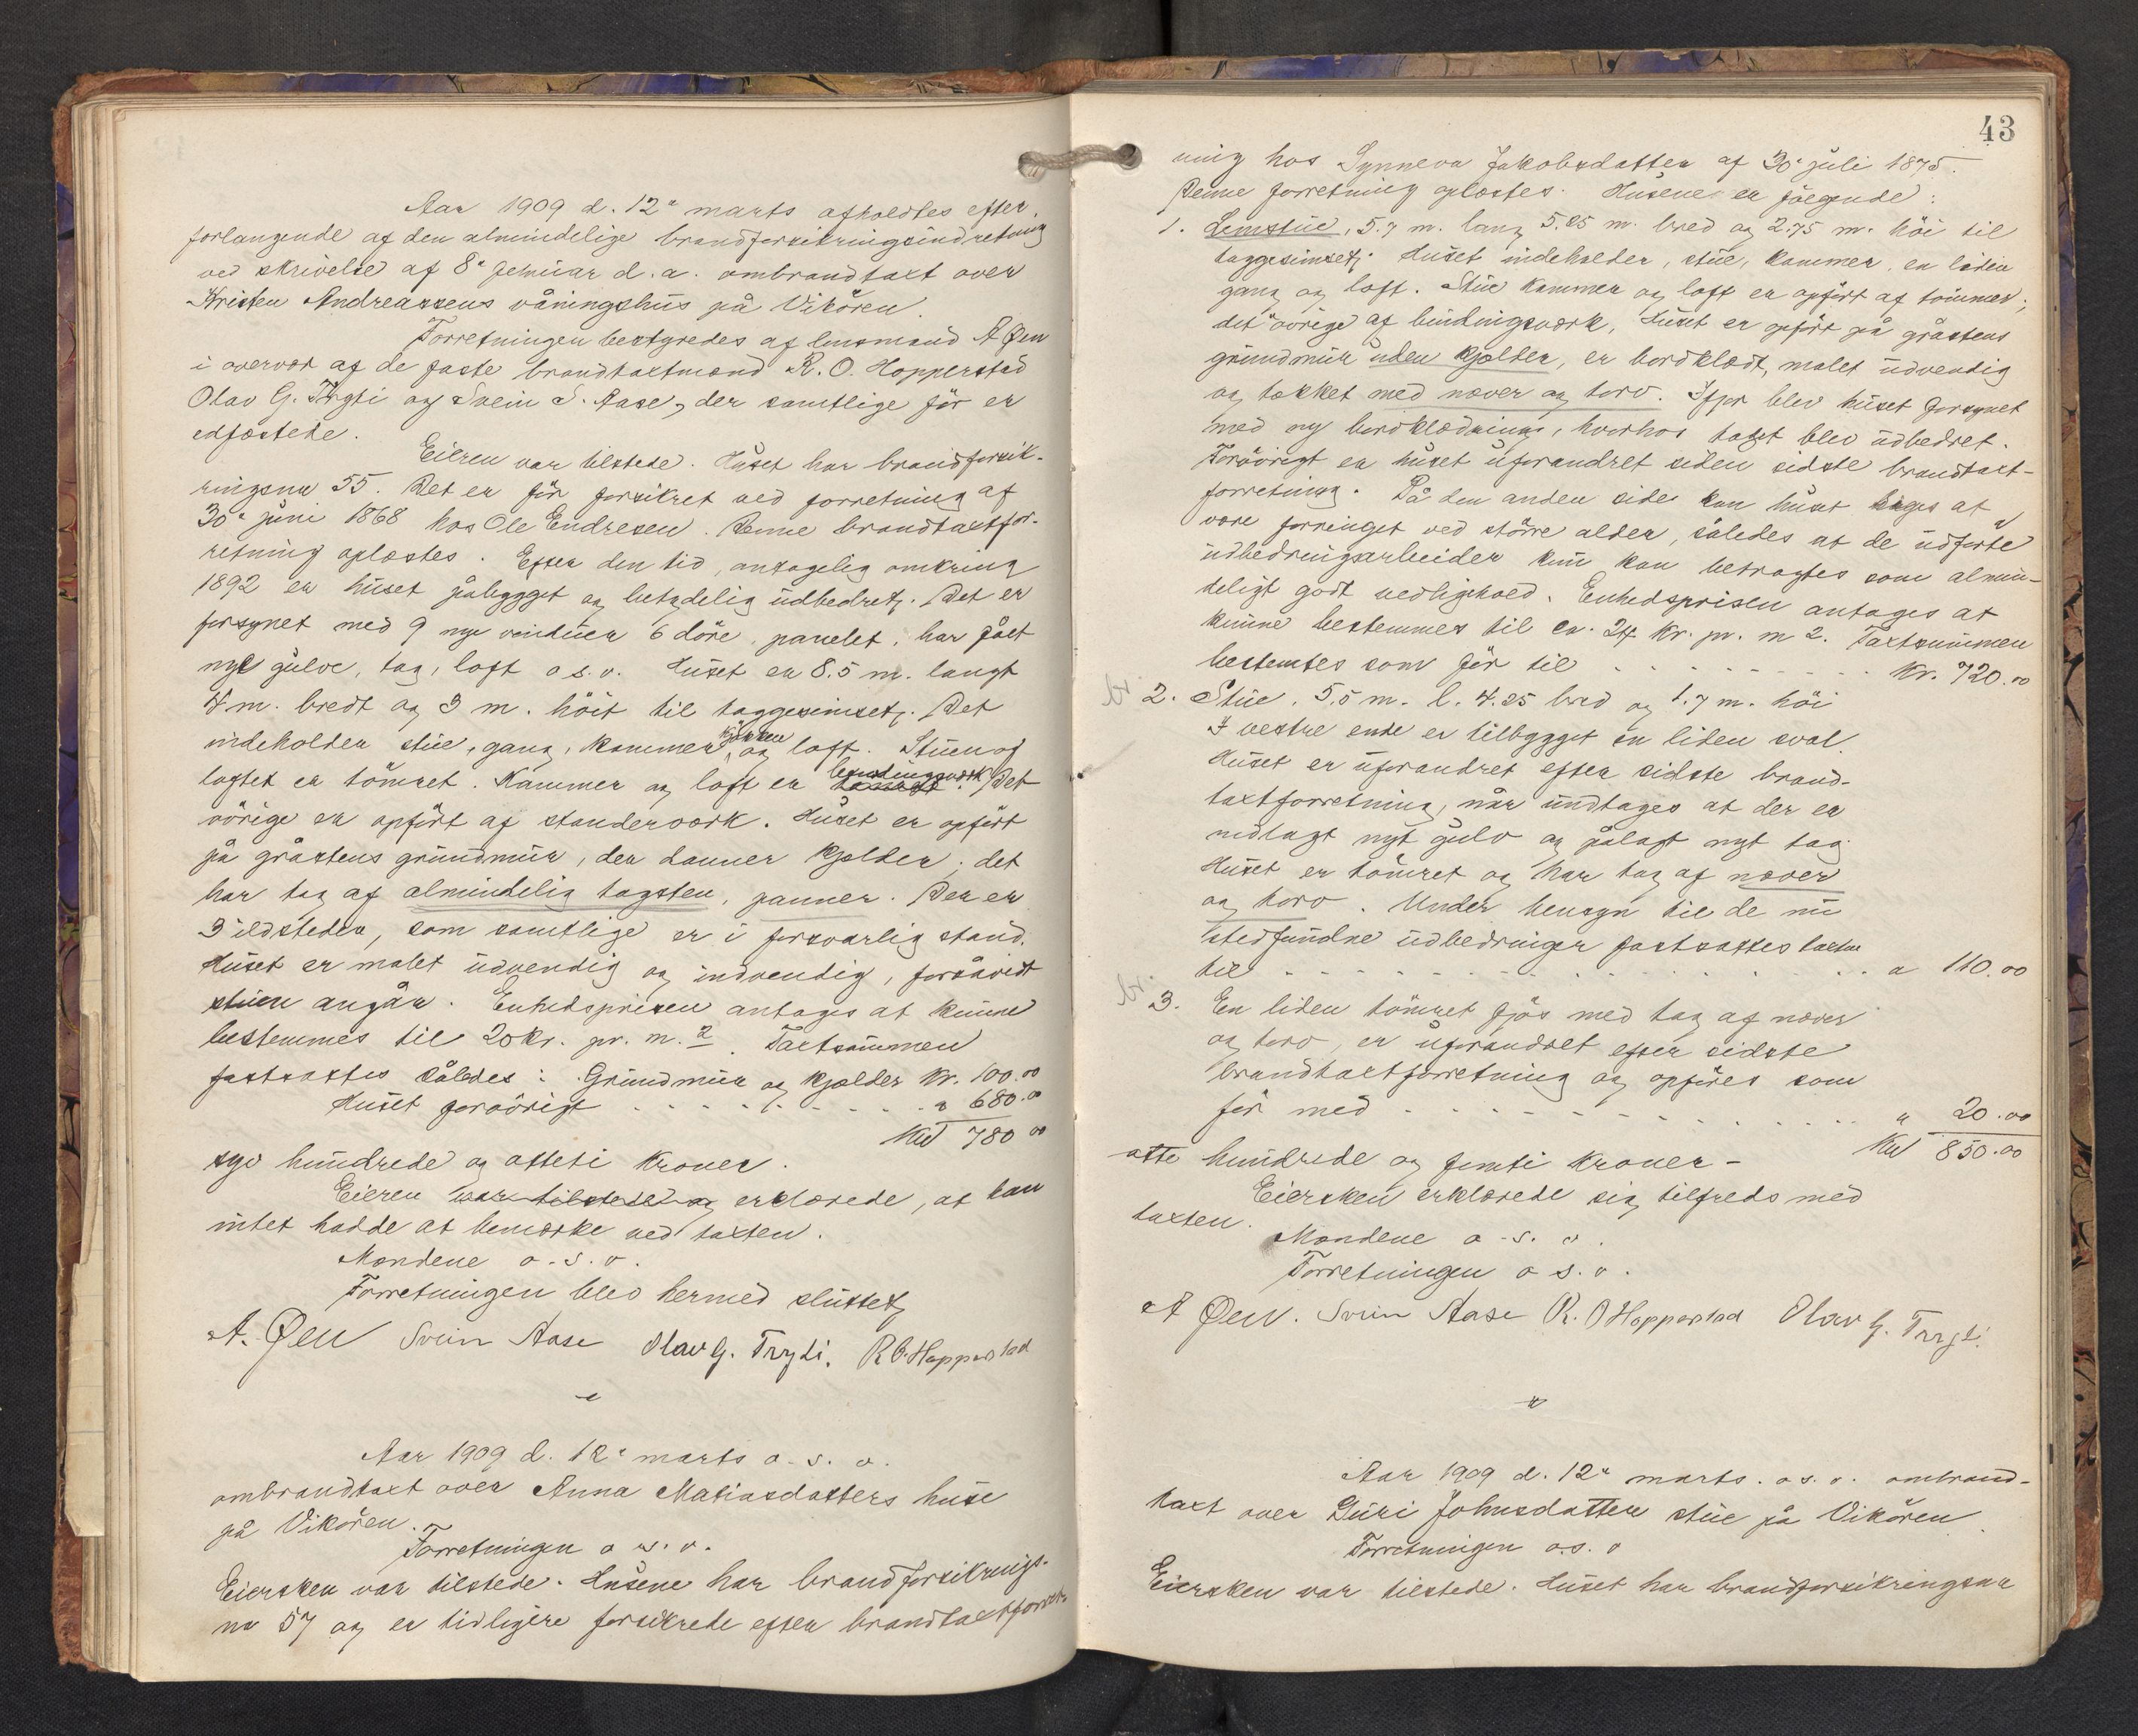 Aar 1909 d. 12te marts afholdtes efter
forlangende af den almindelige brandforsikringsindretning
ved skrivelse af 8de februar d. a. ombrandtaxt over
Kristen Andreassens våningshus på Vikören.
Forretningen bestyredes af lensmand A Øen
i overvær af de faste brandtaxtmænd R. O. Hopperstad
Olav G. Trygti og Svein S. Aase, der samtlige før er
edfæstede.
Eieren var tilstede. Huset har brandforsik-
ringsnr 55. Det er før forsikret ved forretning af
30te juni 1868 hos Ole Endresen. Denne brandtaxtfor-
retning oplæstes. Efter den tid, antagelig omkring
1892 er huset påbygget og betydelig udbedret. Det er
forsynet med 9 nye vinduer 6 döre, panelet, har fået
nye gulve, tag, loft o s. v. Huset er 8.5 m. langt
4 m. bredt og 3 m. höit til taggesimset. Det
indeholder stue, gang, kammer, kjøkken og loft. Stuen og
loftet er tömret. Kammer og loft er bindingsverk. Det
övrige er opfört af standerværk. Huset er opfört
på gråstens grundmur, der danner kjælder; det
har tag af almindelig tagsten, panner. Der er
3 ildsteder, som samtlige er i forsvarlig stand.
Huset er malet udvendig og indvendig, forsåvidt
stuen angår. Enhedsprisen antages at kunne
bestemmes til 20 kr. pr. m. 2. Taxtsummen
fastsattes således: Grundmur og kjælder kr. 100.00
Huset forövrigt - - - - - - - - " 680.00
Kr 780 00
syv hundrede og otteti kroner.
Eieren var tilstede og erklærede, at han
intet hadde at bemærke ved taxten.
Mændene o. s. v.
Forretningen blev hermed sluttet,
A. Øen Svein Aase Olav G. Trygti. R O. Hopperstad
Aar 1909 d. 12te marts o. s. v.
ombrandtaxt over Anna Matiasdatters huse
på Vikören.
Forretningen o s. v.
Eiersken var tilstede. Husene har brandforsikrings-
nr 57 og er tidligere forsikrede efter brandtaxtforret-
43
ning hos Synneva Jakobsdatter af 30te juli 1875.
Denne forretning oplæstes. Husene er følgende:
1. Lemstue, 5.7 m. lang 5.25 m. bred og 2.75 m. höi til
taggesimset. Huset indeholder, stue, kammer, en liden
gang og loft. Stue kammer og loft er opfört af tömmer;
det övrige af bindingsværk, Huset er opfört på gråstens
grundmur uden kjælder, er bordklædt, malet udvendig
og tækket med næver og torv. Ifjor blev huset forsynet
med ny bordklædning, hvorhos taget blev udbedret.
Forövrigt er huset uforandret siden sidste brandtaxt-
forretning. På den anden side kan huset siges at
være forringet ved större alder, således at de udførte
udbedringsarbeider kun kan betragtes som almin-
deligt godt vedligehold. Enhedsprisen antages at
kunne bestemmes til ca. 24 kr. pr. m 2. Taxtsummen
bestemtes som för til - - - - - - - - - kr. 720.00
br. 2. Stue. 5.5 m. l. 4.25 bred og 1.7 m. höi
I vestre ende er tilbygget en liden sval.
Huset er uforandret efter sidste brand-
taxtforretning, når undtages at der er
nedlagt nyt gulv og pålagt nyt tag.
Huset er tömret og har tag af næver
og torv. Under hensyn til de nu
stedfundne udbedringer fastsattes taxten
til - - - - - - - - - - - - - - - " 110.00
br. 3. En liden tömret fjös med tag af næver
og torv, er uforandret efter sidste
brandtaxtforretning og opføres som
för med - - - - - - - - - - - - " 20.00
Kr 850.00
otte hundrede og femti kroner -
Eiersken erklærede sig tilfreds med
taxten.
Mændene o. s. v.
Forretningen o s. v.
A Øen. Svein Aase R. O Hopperstad Olav G. Trygti.
Aar 1909 d. 12te marts. o s. v. ombrand-
taxt over Guri Johnsdatter stue på Vikören.
Forretningen o. s. v
Eiersken var tilstede. Huset har brandforsikringsnr